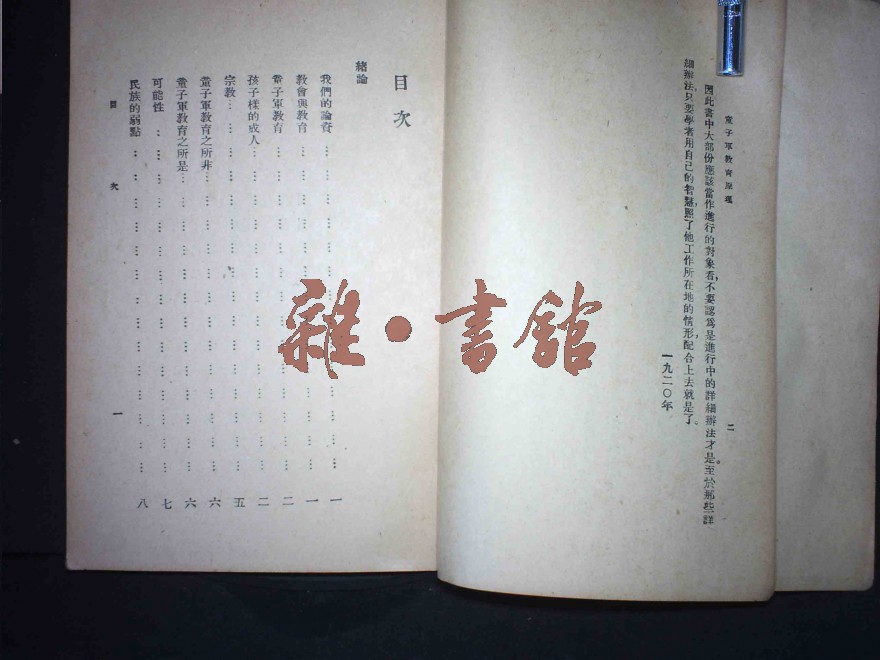 童子軍教育原理
二
因此書中大部份應該當作進行的對象看,不要認爲是進行中的詳細辦法才是。至於那些詳
細辦法,只要學者用自己的智慧,照了他工作所在地的情形,配合上去就是了。
一九二〇年
目次
緒論
我們的論資……一
教會與教育……一
童子軍教育……二
孩子樣的成人……二
宗教……五
童子軍教育之所非……六
童子軍教育之所是……六
可能性……七
民族的弱點……八
目次
一
雜·書館